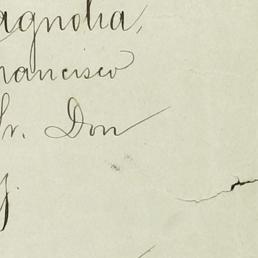 agnolia,
rancisco
Sr. Don
y.